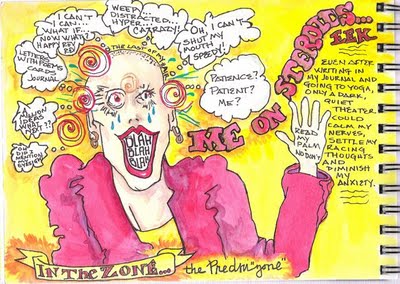 I CAN'T
I CAN'T...
WHAT IF...
NOW WHAT?
HAPPY REV
ED UP
WEEPY...
DISTRACTED...
HYPER...
CRAZY!
OH, I CAN'T
SHUT MY
MOUTH
SPEEDY!
LETTERS WITH POEMS
CARDS
JOURNAL
THE LAST OF MY HAIR
PATIENCE?
PATIENT?
ME?
A MILLION
IDEAS
WHAT??
YOU?
OH DID I
MENTION
EYESIGHT
BLAH
BLAH
BLAH
ME ON STEROIDS...
EEK
EVEN AFTER
WRITING IN
MY JOURNAL AND
GOING TO YOGA,
ONLY A DARK,
QUIET
THEATER
COULD
CALM MY
NERVES,
SETTLE MY
RACING
THOUGHTS
AND
DIMINISH
MY
ANXIETY.
READ
MY
PALM
NO DON'T
IN THE ZONE...
the Predni"zone"